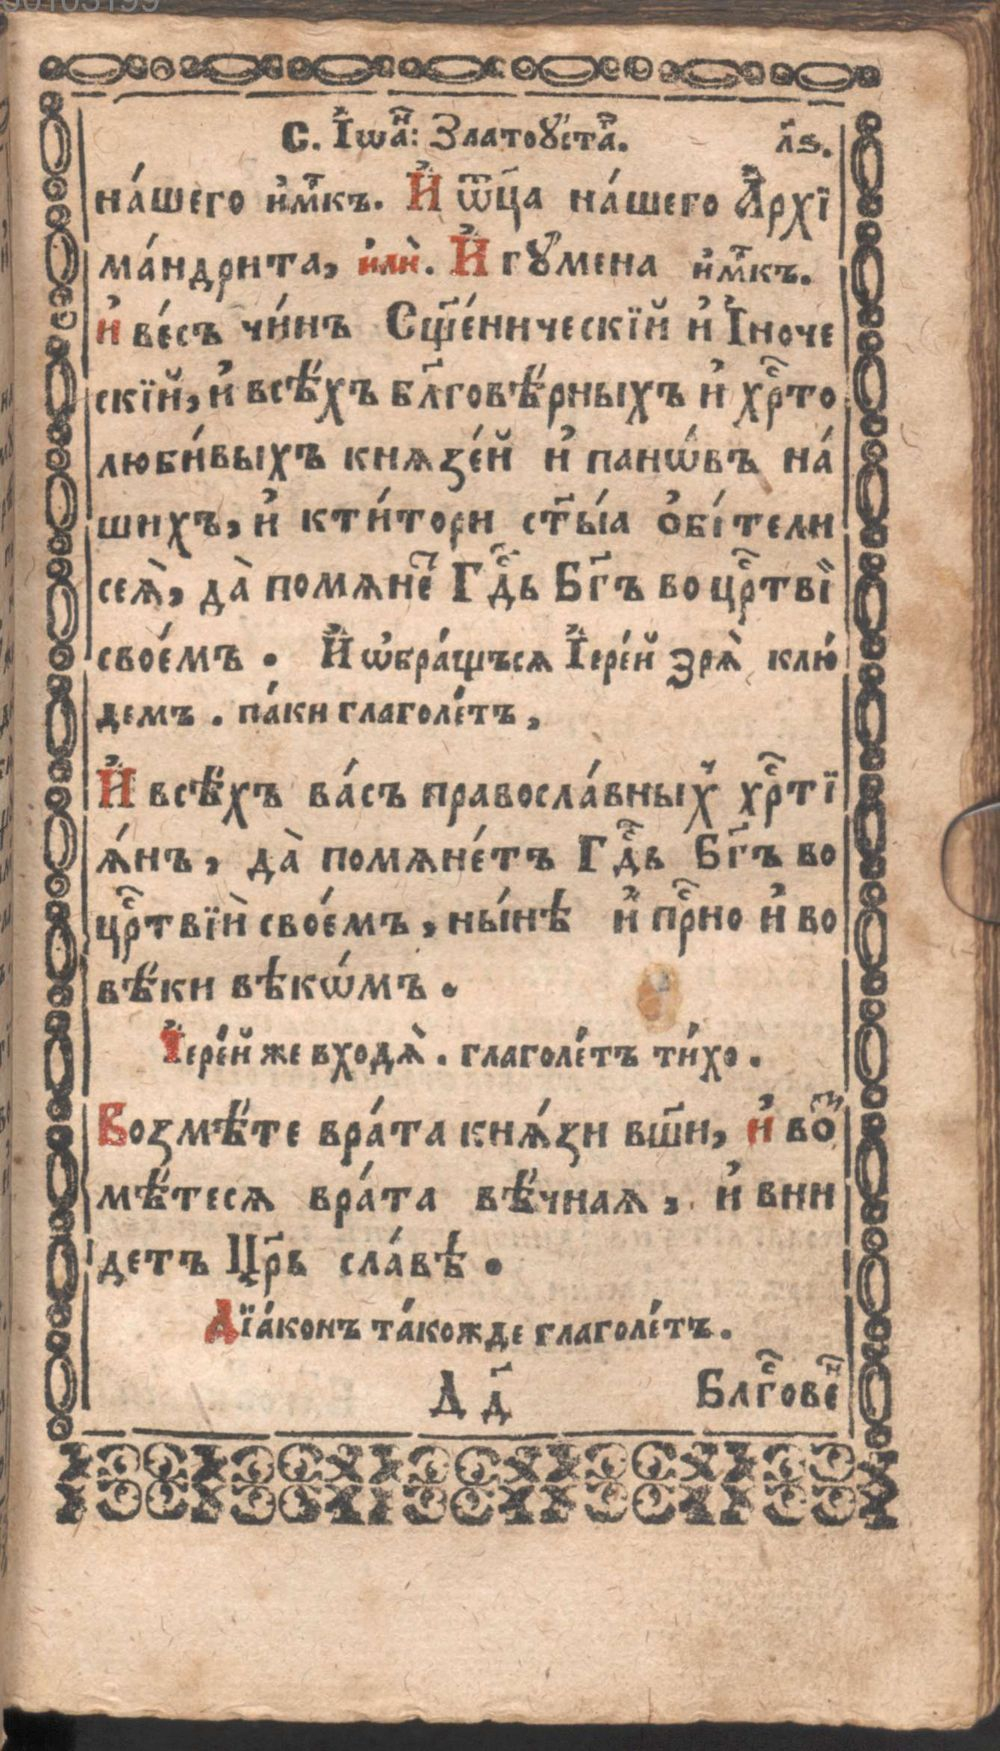 С. І҆ѡа҆́н: Златоꙋ́стаⷢ. л҃ѕ.
на́шего и҆́мⷬ҇къ. И҆ ѿц҃а на́шего А҆рхї
ма́ндрита, и҆лѝ. И҆гꙋ́мена и҆́мⷬ҇къ.
и҆ ве́съ чи́нъ Сщ҃е́ническїй и҆ І҆ноче
скїй, и҆ всѣ́хъ бл҃говѣ́рныхъ и҆ хрⷭ҇то
люби́выхъ князе́й и҆ панѡ́въ на́
шихъ, и҆ кти́тори ст҃ы́ѧ о҆бі́тели
сеѧ̀, да̀ помѧнеⷮ Гдⷭ҇ь Бг҃ъ во црⷭ҇твїѝ
свое́мъ . И҆ ѡ҆бра́щъсѧ І҆ере́й зрѧ̀ клю́
демъ . па́ки глаголе́тъ,
И҆ всѣ́хъ ва́съ православныⷯ хрⷭ҇тї
ѧ́нъ, да̀ помѧне́тъ Гдⷭ҇ь Бг҃ъ во
црⷭ҇твїѝ свое́мъ, ны́нѣ и҆ прⷭ҇но и҆ во
вѣ́ки вѣкѡ́мъ .
І҆ере́й же входѧ̀ . глаголе́тъ ти́хо .
Возмѣ́те вра́та кнѧ́зи вш҃и, и҆ воⷥ
мѣ́тесѧ вра́та вѣ́чнаѧ, и҆ вни
детъ Цр҃ь сла́вѣ .
Дїа́конъ та́кожде глаголе́тъ .
Д д҃
Блгⷭ҇овеⷩ